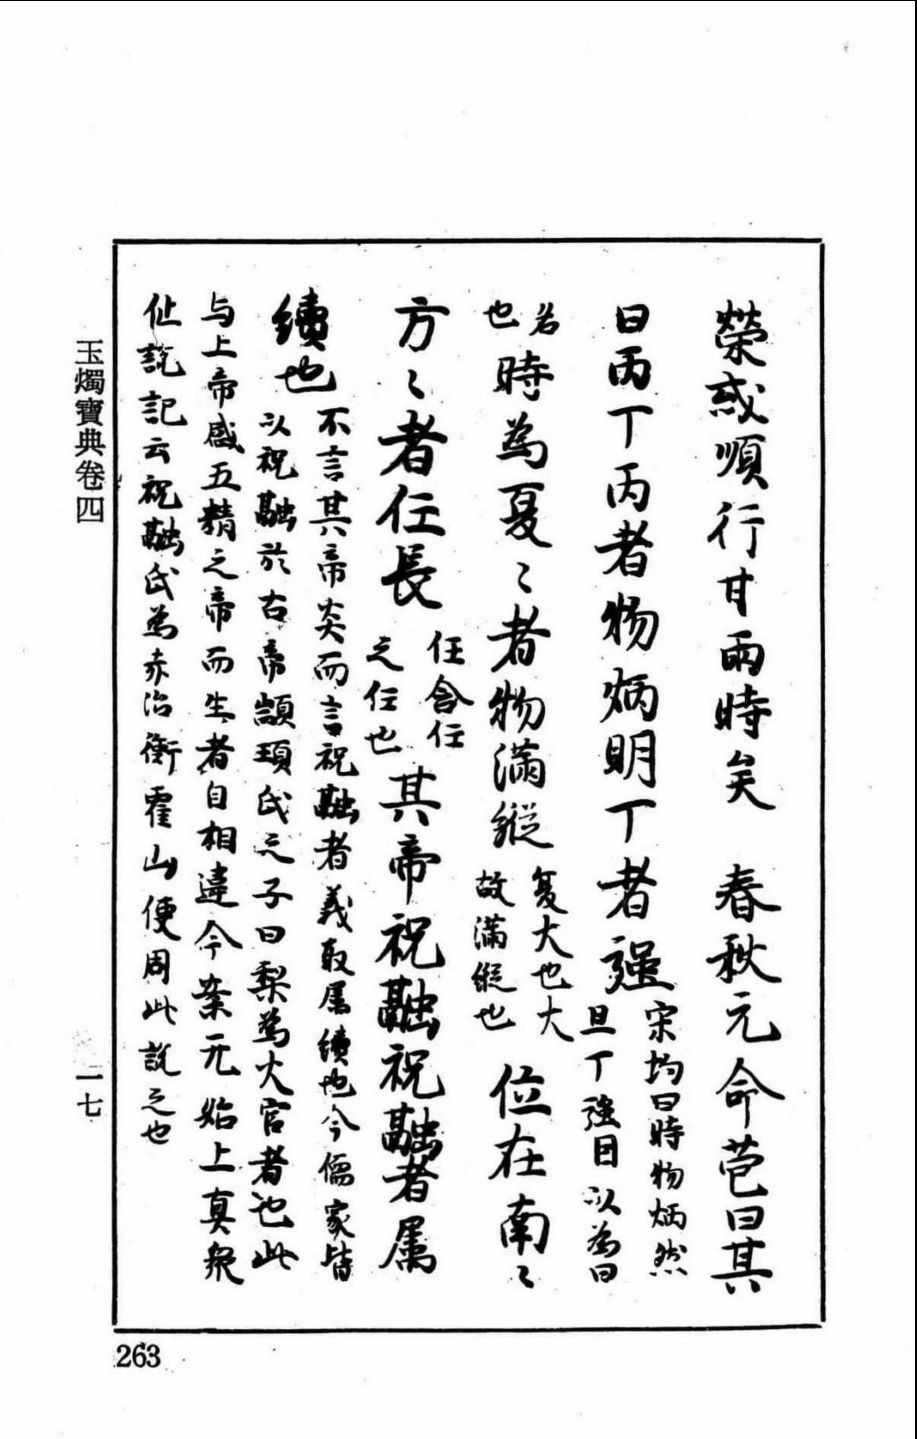 榮惑順行甘雨時矣　春秋元命苞曰其
日丙丁丙者物炳明丁者強宋均曰時物炳然且丁強因以為曰
名也時為夏〻者物滿縱夏大也大故滿縱也位在南〻
方〻者任長任含任之任也其帝祝融祝融者属
續也不言其帝炎而言祝融者義取属續也今儒家皆
以祝融於古帝顓頊氏之子曰梨為火官者也此
与上帝感五精之帝而生者自相違今案无始上真衆
仙記云祝融氏為赤治衡霍山便周此説之也
玉燭寶典卷四
一七
263